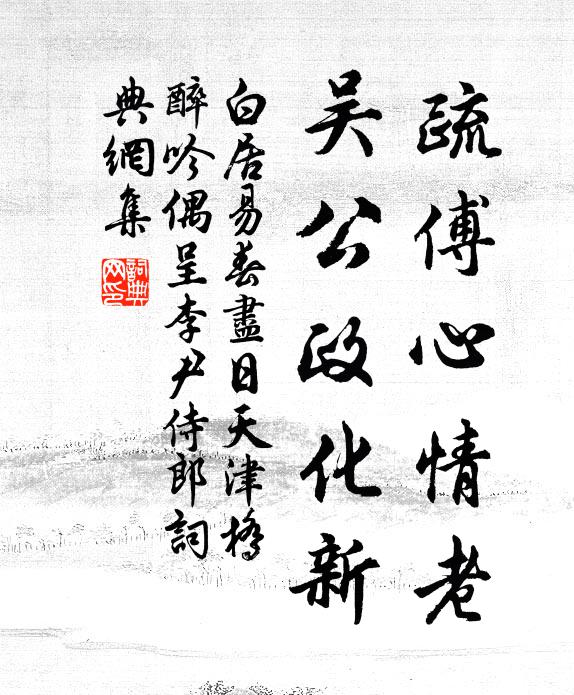 疏傅心情老
吴公政化新
白居易春盡日天津橋
醉吟偶呈李尹侍郎詞
典網集
詞典
网印